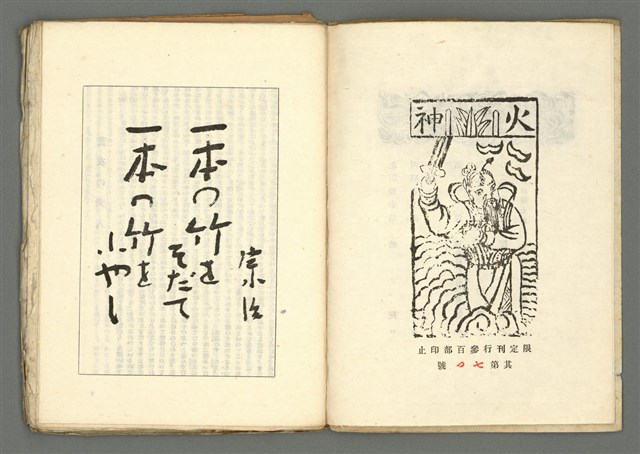 火神
限定刊行參百部印止
其第七 號
宗治
一本の竹を
そだて
一本の竹を
ふやし